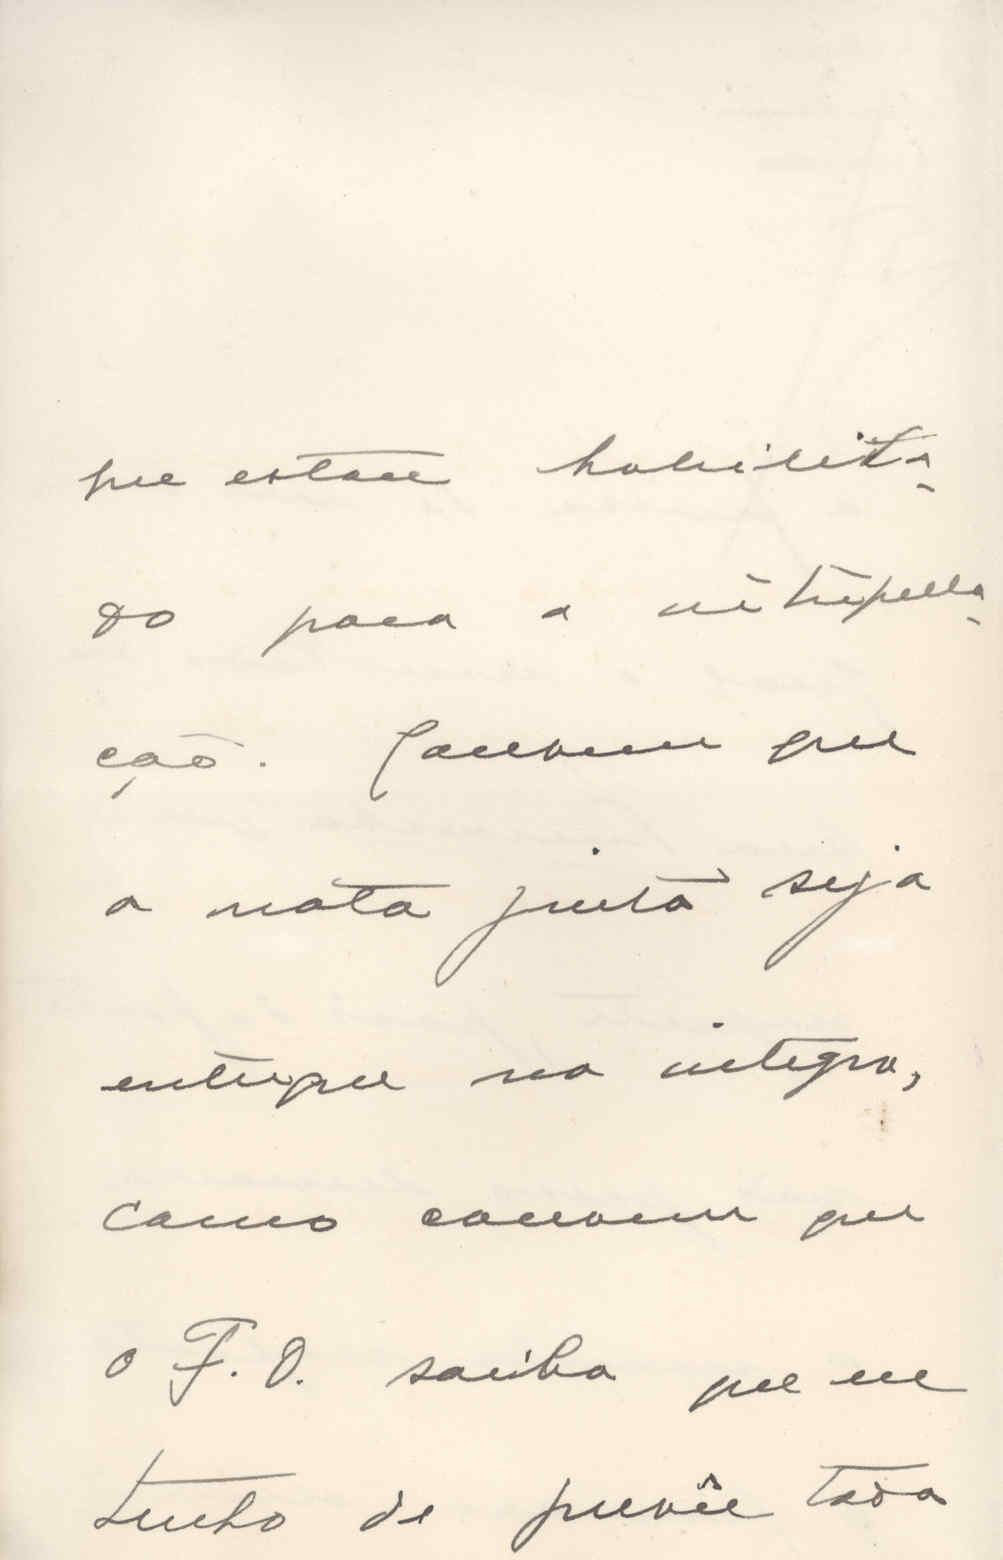 que estou habilita-
do para a interpella-
ção. Convem que
a nota junta seja
entregue na integra,
como convem que
o F. O. saiba que eu
tenho de prevêr toda